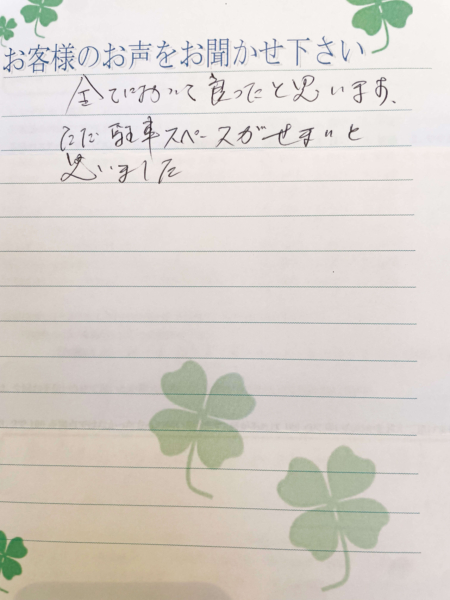 お客様のお声をお聞かせ下さい
全てにおいて良かったと思います、
ただ駐車スペースがせまいと
思いました